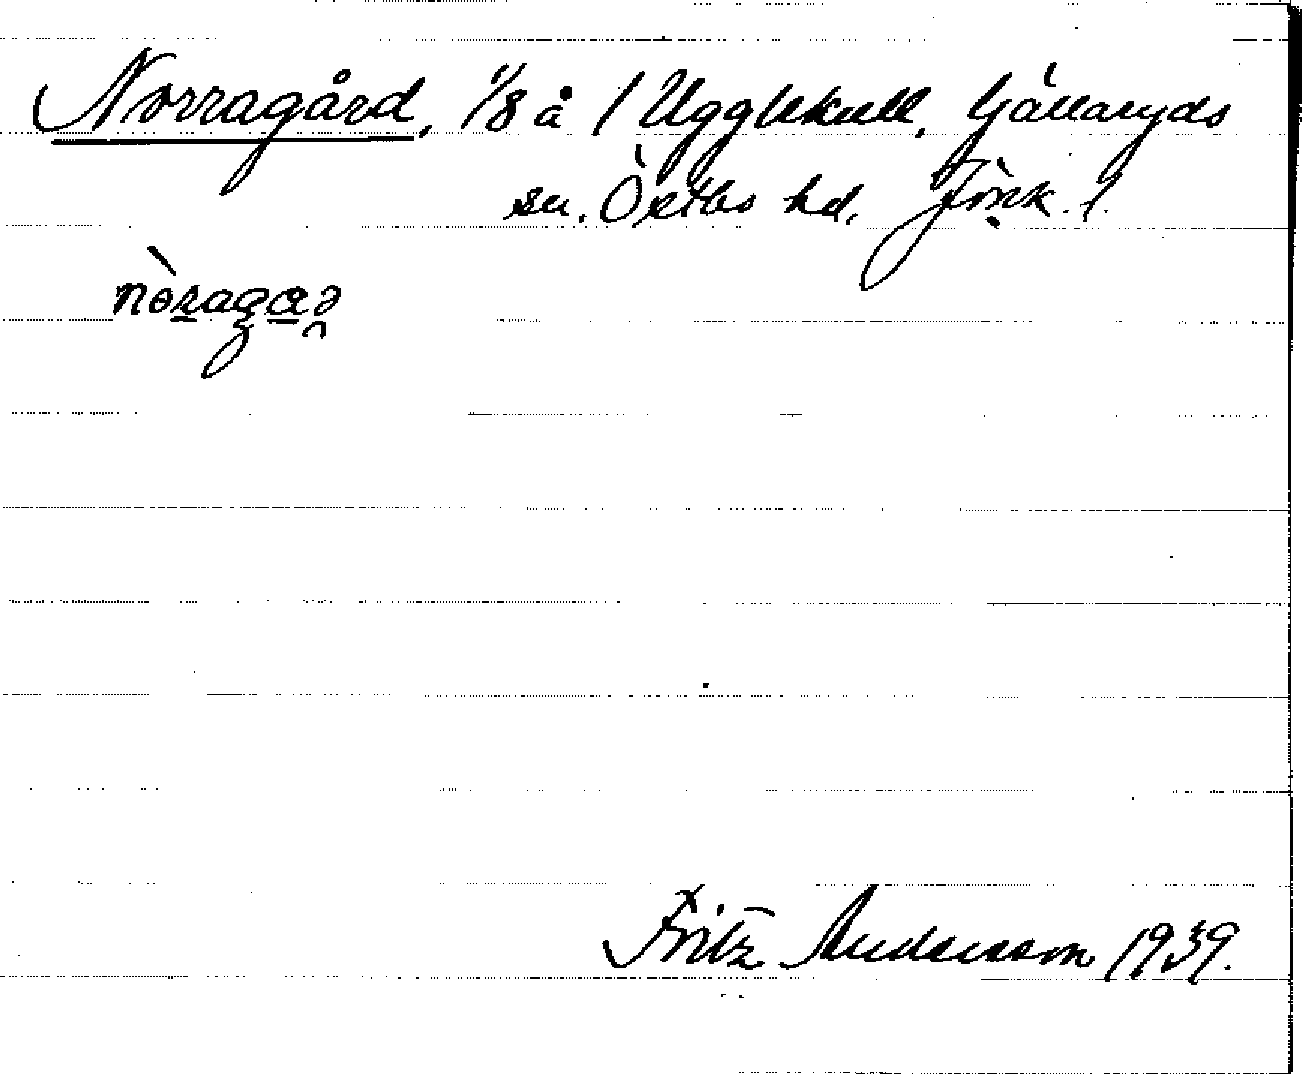 Norragård, 1/8 å 1 Ugglekull, Gällaryds
sn. Östbo hd, Jönk. l.
nòragaə
Fritz Andersson 1939.